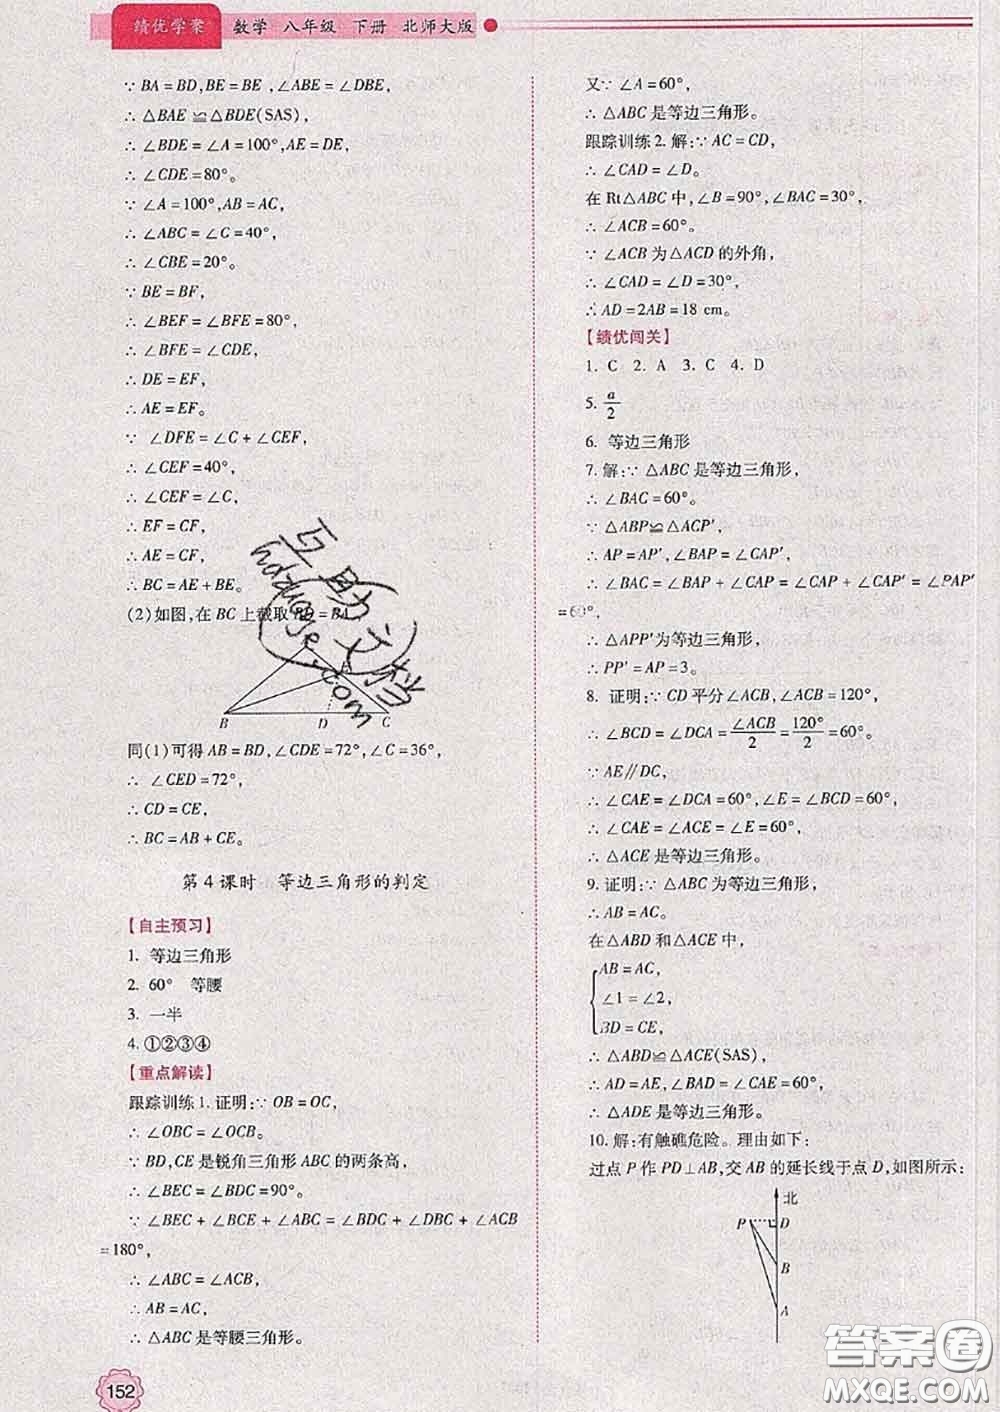 绩优学案 数学·八年级·下册·北师大版
∵ BA=BD,BE=BE,∠ABE=∠DBE,
∴ △BAE≌△BDE(SAS),
∴ ∠BDE=∠A=100°,AE=DE,
∴ ∠CDE=80°。
∵ ∠A=100°,AB=AC,
∴ ∠ABC=∠C=40°,
∴ ∠CBE=20°。
∵ BE=BF,
∴ ∠BEF=∠BFE=80°,
∴ ∠BFE=∠CDE,
∴ DE=EF,
∴ AE=EF。
∵ ∠DFE=∠C+∠CEF,
∴ ∠CEF=40°,
∴ ∠CEF=∠C,
∴ EF=CF,
∴ AE=CF,
∴ BC=AE+BE。
(2)如图,在BC上截取BD=BA
B D C
同(1)可得AB=BD,∠CDE=72°,∠C=36°,
∴ ∠CED=72°,
∴ CD=CE,
∴ BC=AB+CE。
第4课时 等边三角形的判定
【自主预习】
1. 等边三角形
2. 60° 等腰
3. 一半
4. ①②③④
【重点解读】
跟踪训练1. 证明:∵ OB=OC,
∴ ∠OBC=∠OCB。
∵ BD,CE是锐角三角形ABC的两条高,
∴ ∠BEC=∠BDC=90°。
∵ ∠BEC+∠BCE+∠ABC=∠BDC+∠DBC+∠ACB
=180°,
∴ ∠ABC=∠ACB,
∴ AB=AC,
∴ △ABC是等腰三角形。
152
又∵ ∠A=60°,
∴ △ABC是等边三角形。
跟踪训练2. 解:∵ AC=CD,
∴ ∠CAD=∠D。
在Rt△ABC中,∠B=90°,∠BAC=30°,
∴ ∠ACB=60°。
∵ ∠ACB为△ACD的外角,
∴ ∠CAD=∠D=30°,
∴ AD=2AB=18 cm。
【绩优闯关】
1. C 2. A 3. C 4. D
5. a/2
6. 等边三角形
7. 解:∵ △ABC是等边三角形,
∴ ∠BAC=60°。
∵ △ABP≌△ACP′,
∴ AP=AP′,∠BAP=∠CAP′,
∴ ∠BAC=∠BAP+∠CAP=∠CAP+∠CAP′=∠PAP′
=60°,
∴ △APP′为等边三角形,
∴ PP′=AP=3。
8. 证明:∵ CD平分∠ACB,∠ACB=120°,
∴ ∠BCD=∠DCA=∠ACB/2=120°/2=60°。
∵ AE∥DC,
∴ ∠CAE=∠DCA=60°,∠E=∠BCD=60°,
∴ ∠CAE=∠ACE=∠E=60°,
∴ △ACE是等边三角形。
9. 证明:∵ △ABC为等边三角形,
∴ AB=AC。
在△ABD和△ACE中,
AB=AC,
∠1=∠2,
BD=CE,
∴ △ABD≌△ACE(SAS),
∴ AD=AE,∠BAD=∠CAE=60°,
∴ △ADE是等边三角形。
10. 解:有触礁危险。理由如下:
过点P作PD⊥AB,交AB的延长线于点D,如图所示:
北
P D
B
A
互助文档
hdzuoye.com
答案圈
MXQE.COM